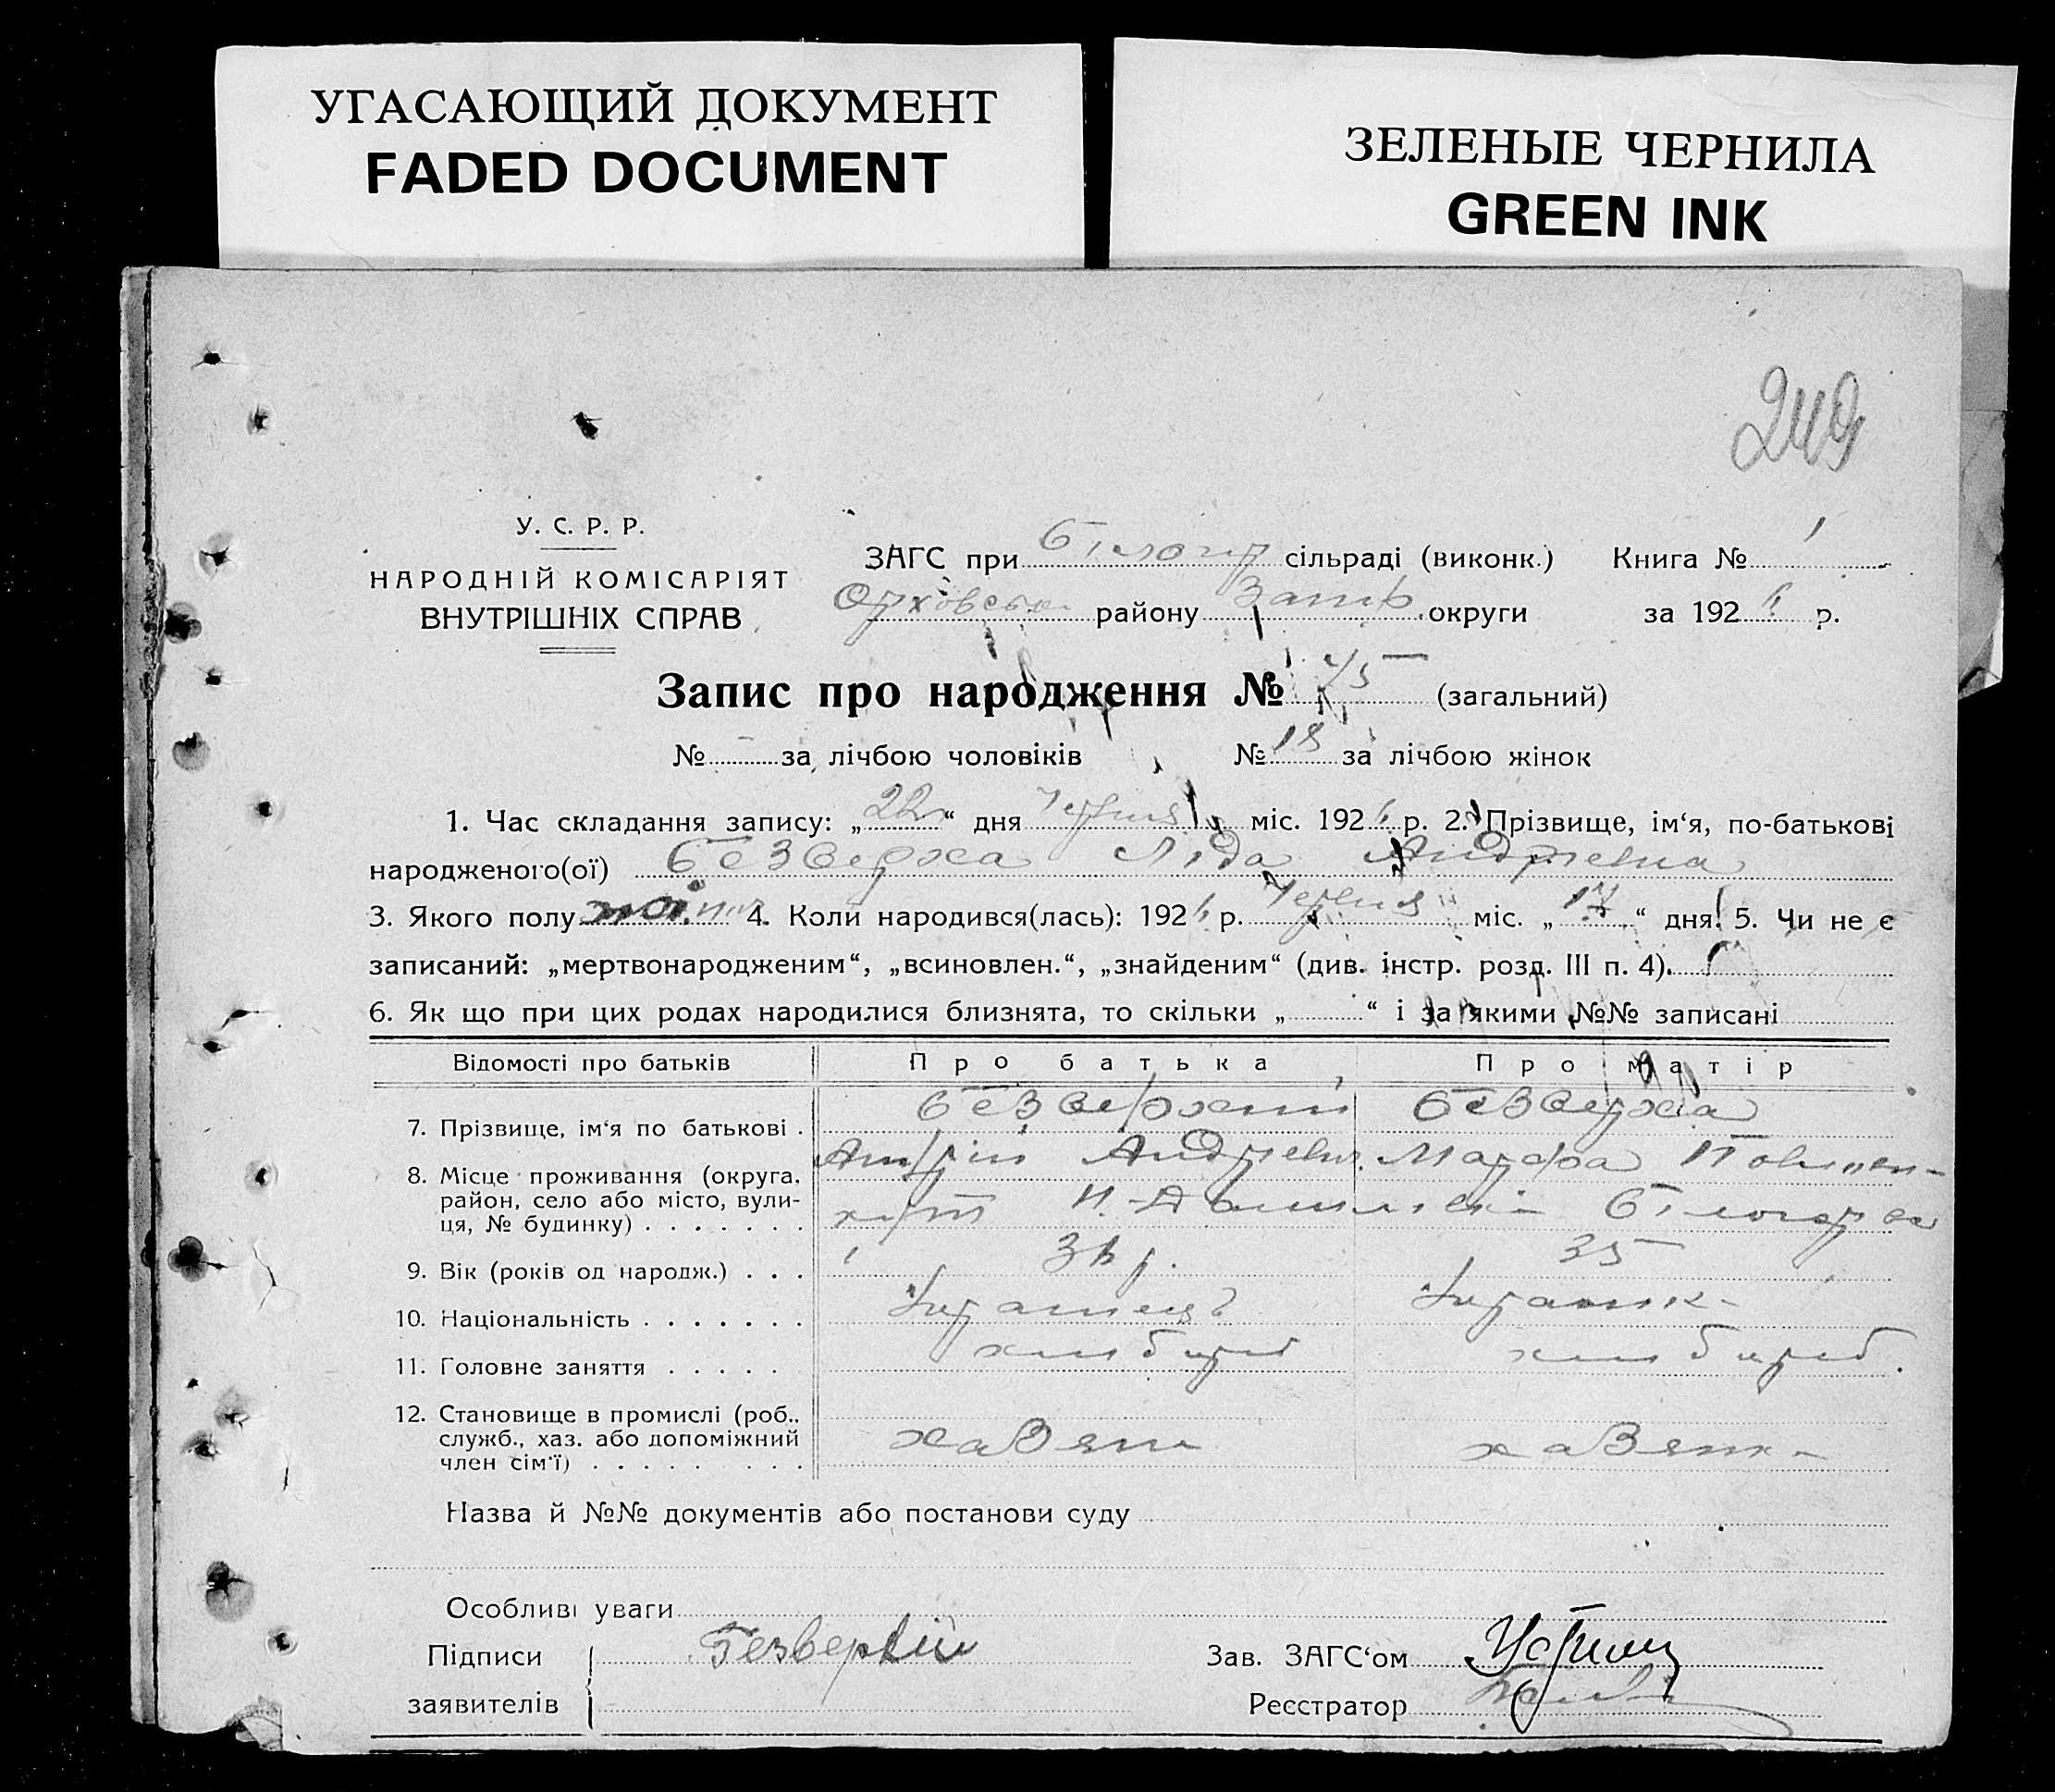 УГАСАЮЩИЙ ДОКУМЕНТ
FADED DOCUMENT
ЗЕЛЕНЫЕ ЧЕРНИЛА
GREEN INK
249
У. С. Р. Р.
НАРОДНІЙ КОМІСАРІЯТ
ВНУТРІШНІХ СПРАВ
ЗАГС при Білогір сільраді (виконк.) Книга № 1
району Запор округи за 192 р.
Запис про народження № 75 (загальний)
№ - за лічбою чоловіків № 18 за лічбою жінок
1. Час складання запису: „22“ дня Червня міс. 192 р. 2. Прізвище, ім‘я, по-батькові
народженого(ої) Безверха Ліда Андріевна
3. Якого полу 4. Коли народився(лась): 192 р. Червня міс. „17“ дня. 5. Чи не є
записаний: „мертвонародженим“, „всиновлен.“, „знайденим“ (див. інстр. розд. III п. 4).
6. Як що при цих родах народилися близнята, то скільки „ “ і за якими №№ записані
Відомості про батьків Про батька Про матір
7. Прізвище, ім‘я по батькові . Безверхий Безверха
Андрій Андріевич. Марфа
8. Місце проживання (округа,
район, село або місто, вули-
ця, № будинку) . . . . . . .
9. Вік (років од народж.) . . . 35
10. Національність . . . . . . . Українець Українк-
11. Головне заняття . . . . . хлібороб хлібороб.
12. Становище в промислі (роб.,
служб., хаз. або допоміжний
член сім‘ї) . . . . . . . . хазяін хазяйк-
Назва й №№ документів або постанови суду
Особливі уваги
Підписи Безверхий Зав. ЗАГС‘ом
заявителів Реєстратор